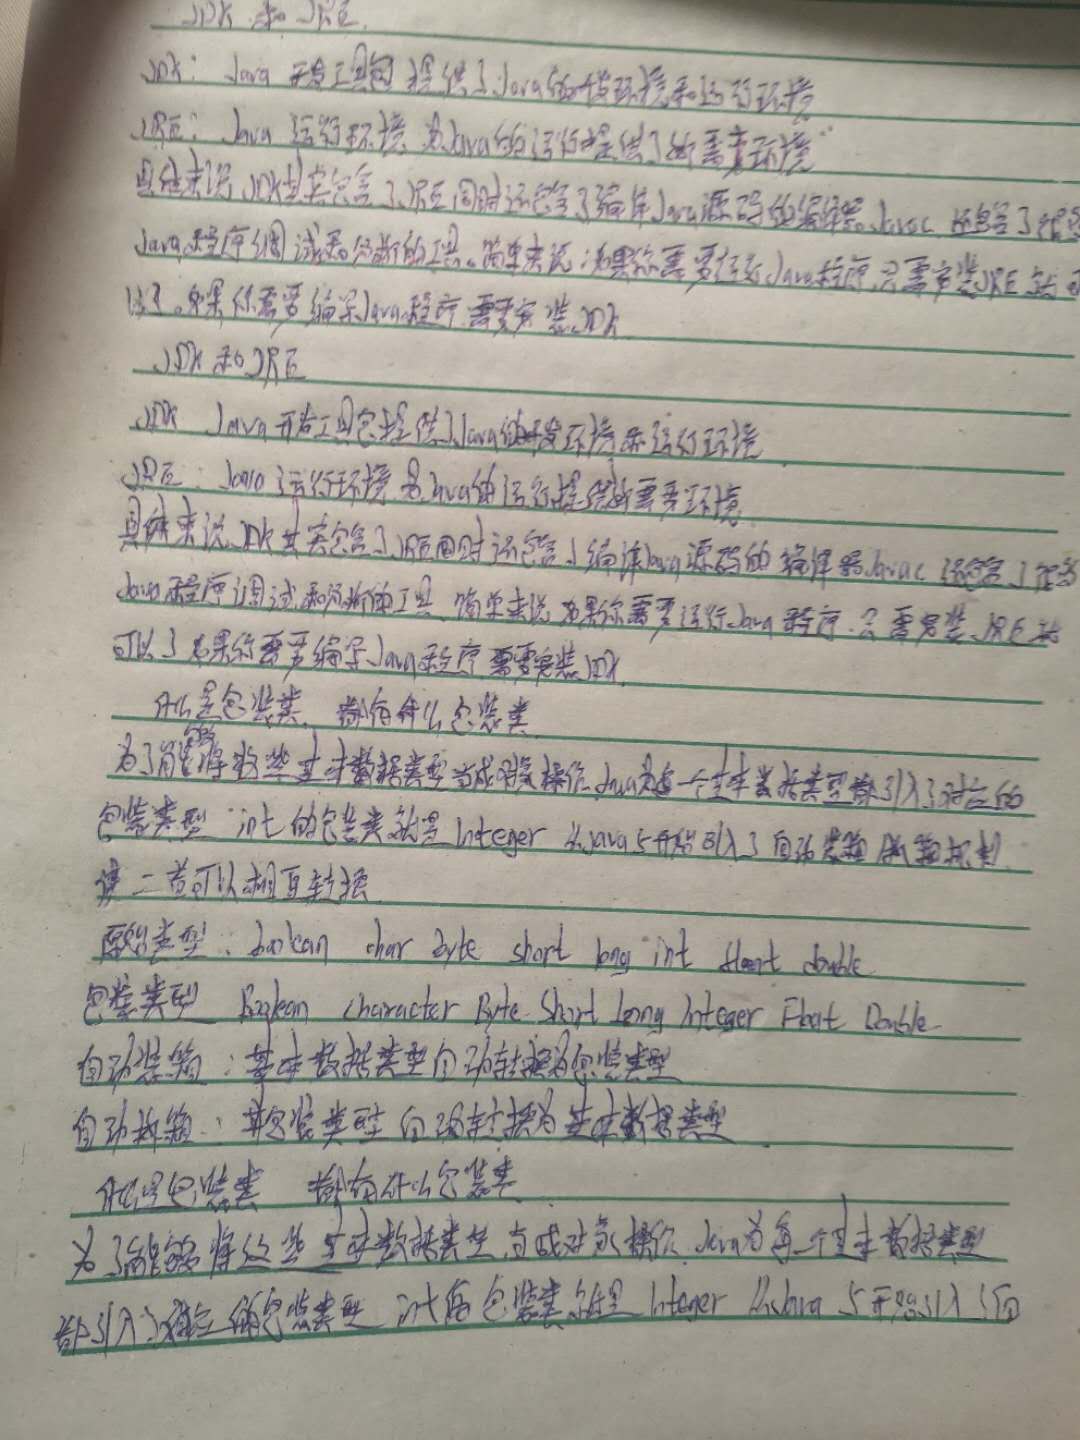 JDK 和 JRE
JDK: Java 开发工具包 提供了Java的开发环境和运行环境
JRE: Java 运行环境 为Java的运行提供了所需要环境
具体来说 JDK其实包含了JRE同时还包含了编译Java源码的编译器Javac 还包含了很多
Java程序调试和分析的工具。简单来说:如果你需要运行Java程序,只需安装JRE就可
以了。如果你需要编写Java程序 需要安装JDK
JDK和JRE
JDK Java 开发工具包提供了Java的开发环境和运行环境
JRE: Java 运行环境 为Java的运行提供所需要环境
具体来说 JDK其实包含了JRE同时还包含了编译Java源码的编译器Javac 还包含了很多
Java程序调试和分析的工具 简单来说 如果你需要运行Java程序,只需安装JRE就
可以了 如果你需要编写Java程序 需要安装JDK
什么是包装类 都有什么包装类
为了能够将这些基本数据类型当成对象操作 Java为每一个基本数据类型都引入了对应的
包装类型 int的包装类就是Integer 从Java5开始引入了自动装箱/拆箱机制
使二者可以相互转换
原始类型: boolean char byte short long int float double
包装类型 Boolean Character Byte Short Long Integer Float Double
自动装箱:基本数据类型自动转换为包装类型
自动拆箱:包装类型自动转换为基本数据类型
什么是包装类 都有什么包装类
为了能够将这些基本数据类型当成对象操作 Java为每一个基本数据类型
都引入了对应的包装类型 int的包装类就是Integer 从Java 5开始引入了自